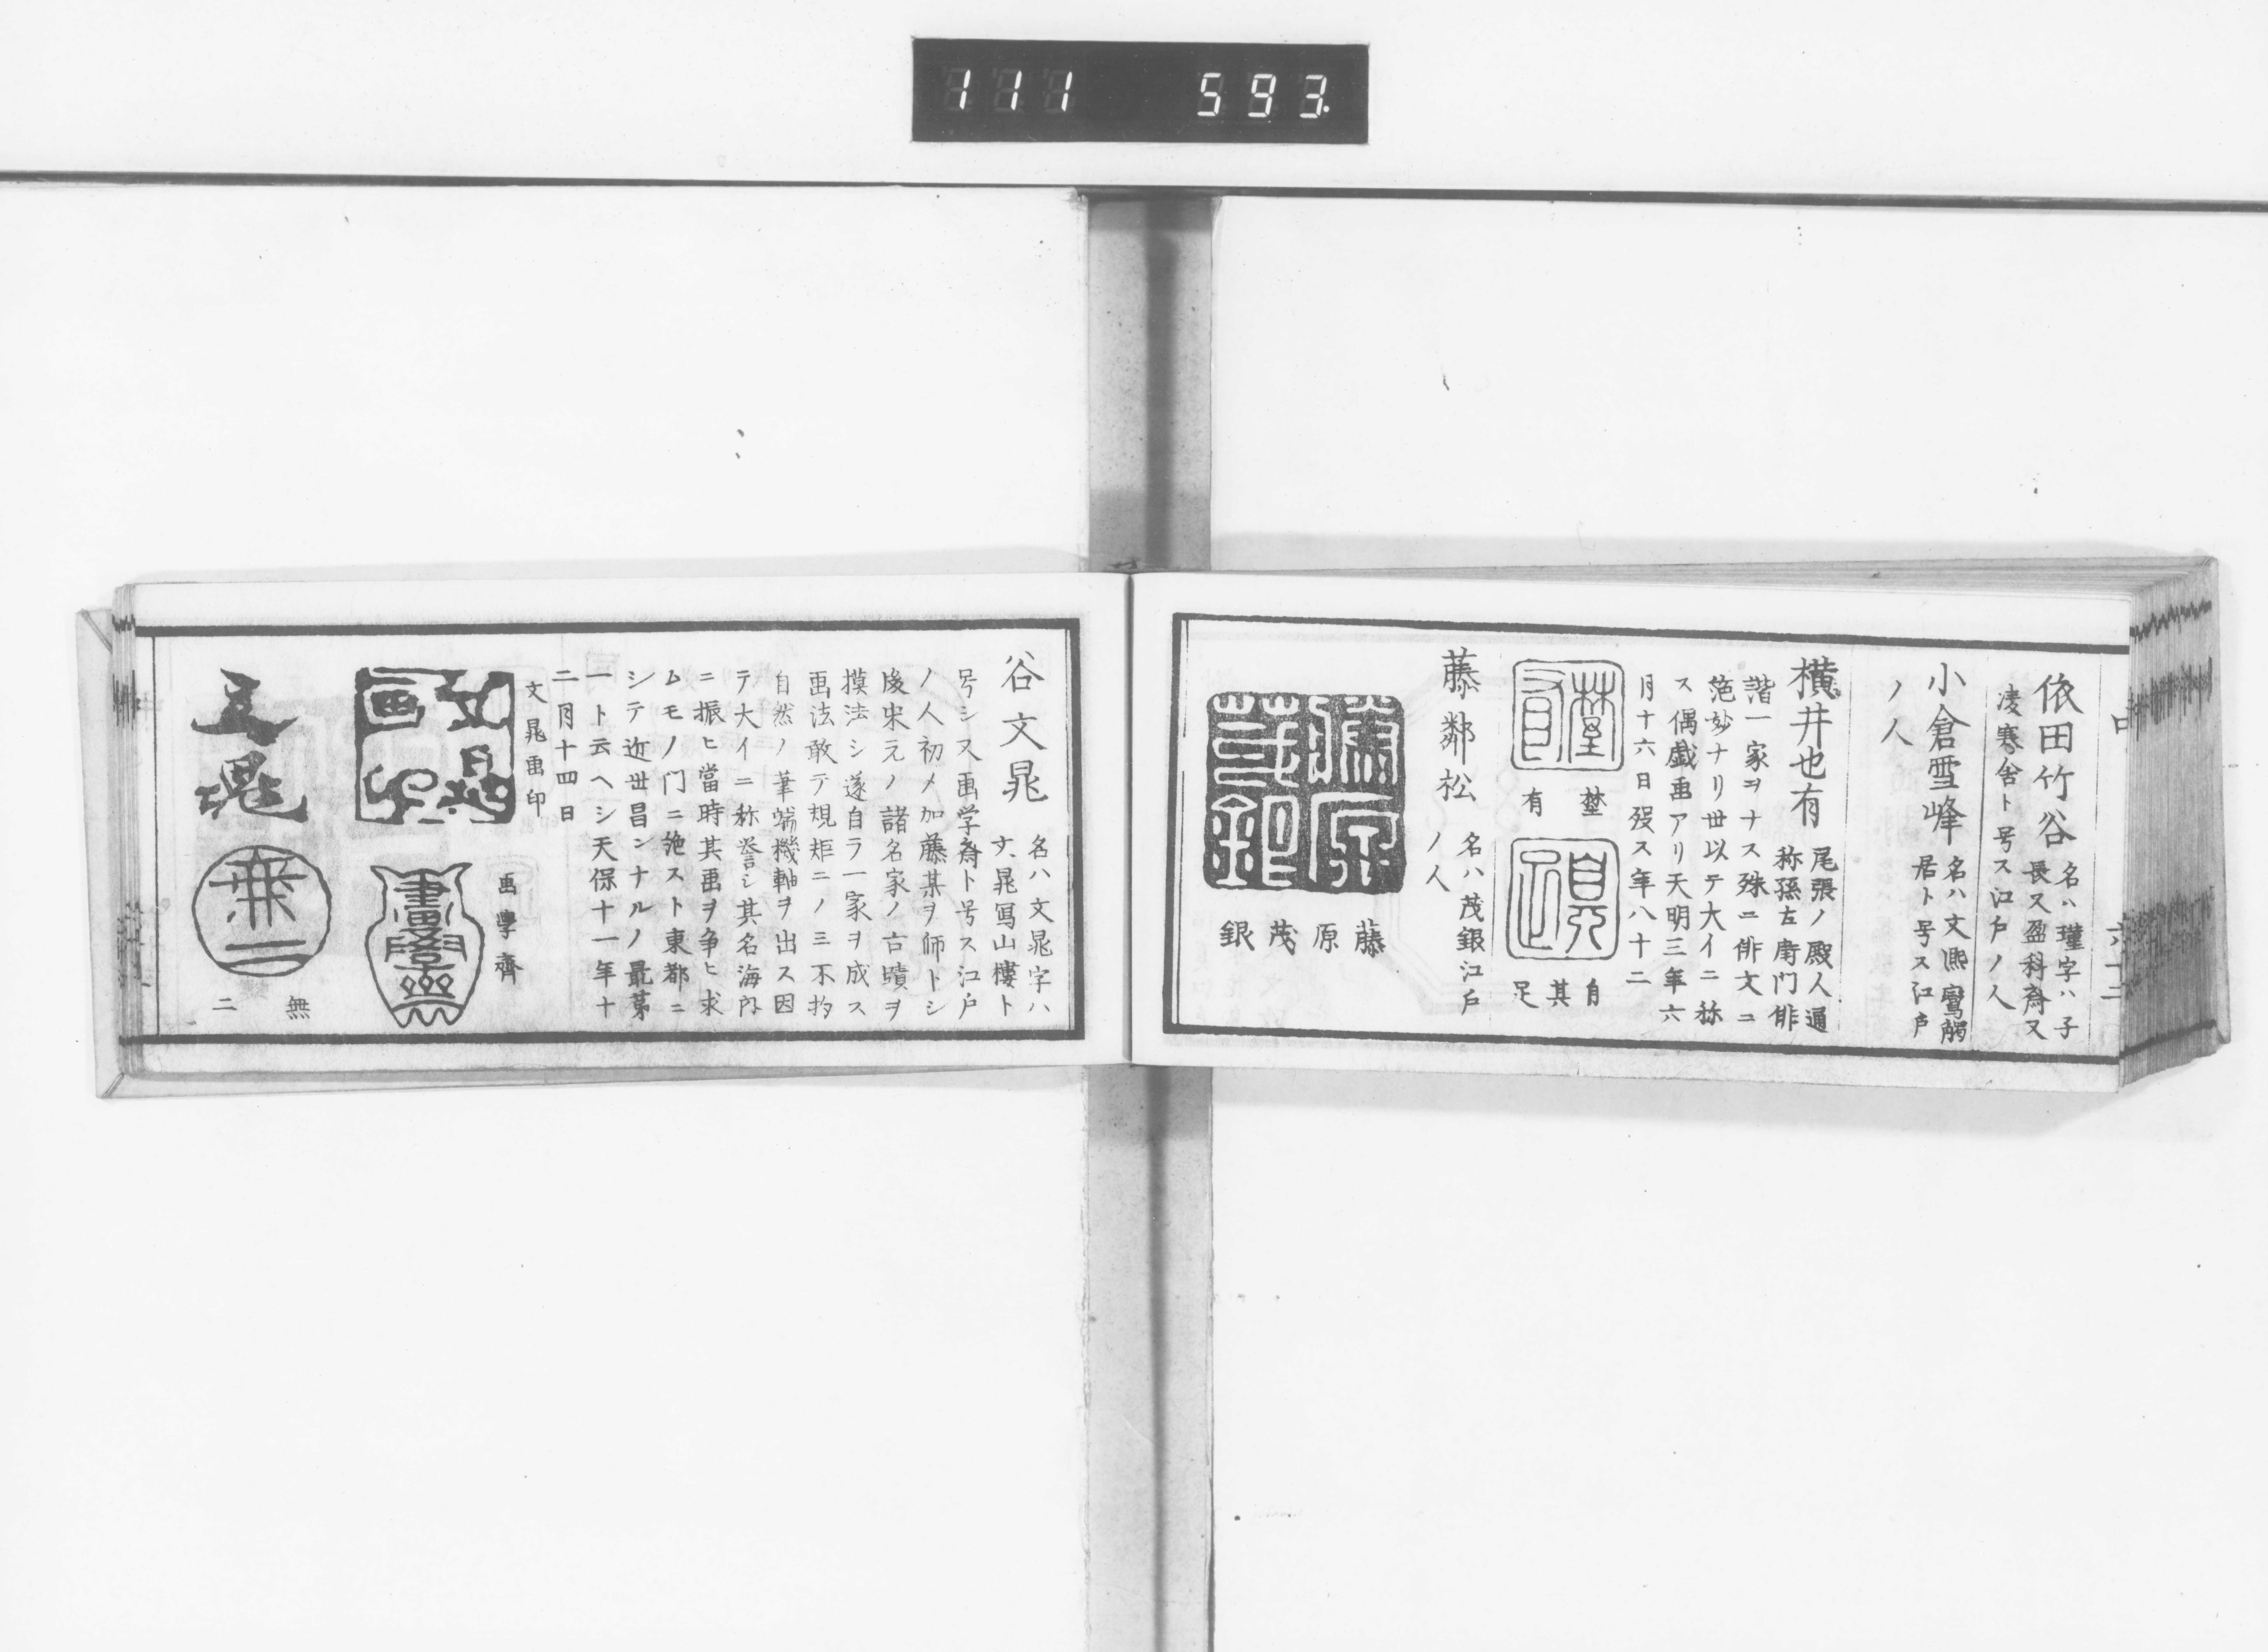 111 593.
依田竹谷
名ハ瑾字ハ子
長又盈科斎又
凌寒舎ト号ス江戸ノ人
小倉雪峰
名ハ文熙
居ト号ス江戸
ノ人
横井也有
尾張ノ殿人通
称孫右衛門俳
諧一家ヲナス殊ニ俳文ニ
絶妙ナリ世以テ大イニ称
ス偶戯画アリ天明三年六
月十六日歿ス年八十二
埜有
自其足
藤鄰松
名ハ茂銀江戸
ノ人
藤原茂銀
谷文晁
名ハ文晁字ハ
文晁写山樓ト
号シ又画学斎ト号ス江戸
ノ人初メ加藤某ヲ師トシ
後宋元ノ諸名家ノ古蹟ヲ
摸法シ遂自ラ一家ヲ成ス
画法敢テ規矩ニノミ不拘
自然ノ筆端機軸ヲ出ス因
テ大イニ称誉シ其名海内
ニ振ヒ當時其画ヲ争ヒ求
ムモノ門ニ絶スト東都ニ
シテ近世昌ンナルノ最第
一ト云ヘシ天保十一年十
二月十四日
文晁画印
画學齋
文晁
無二